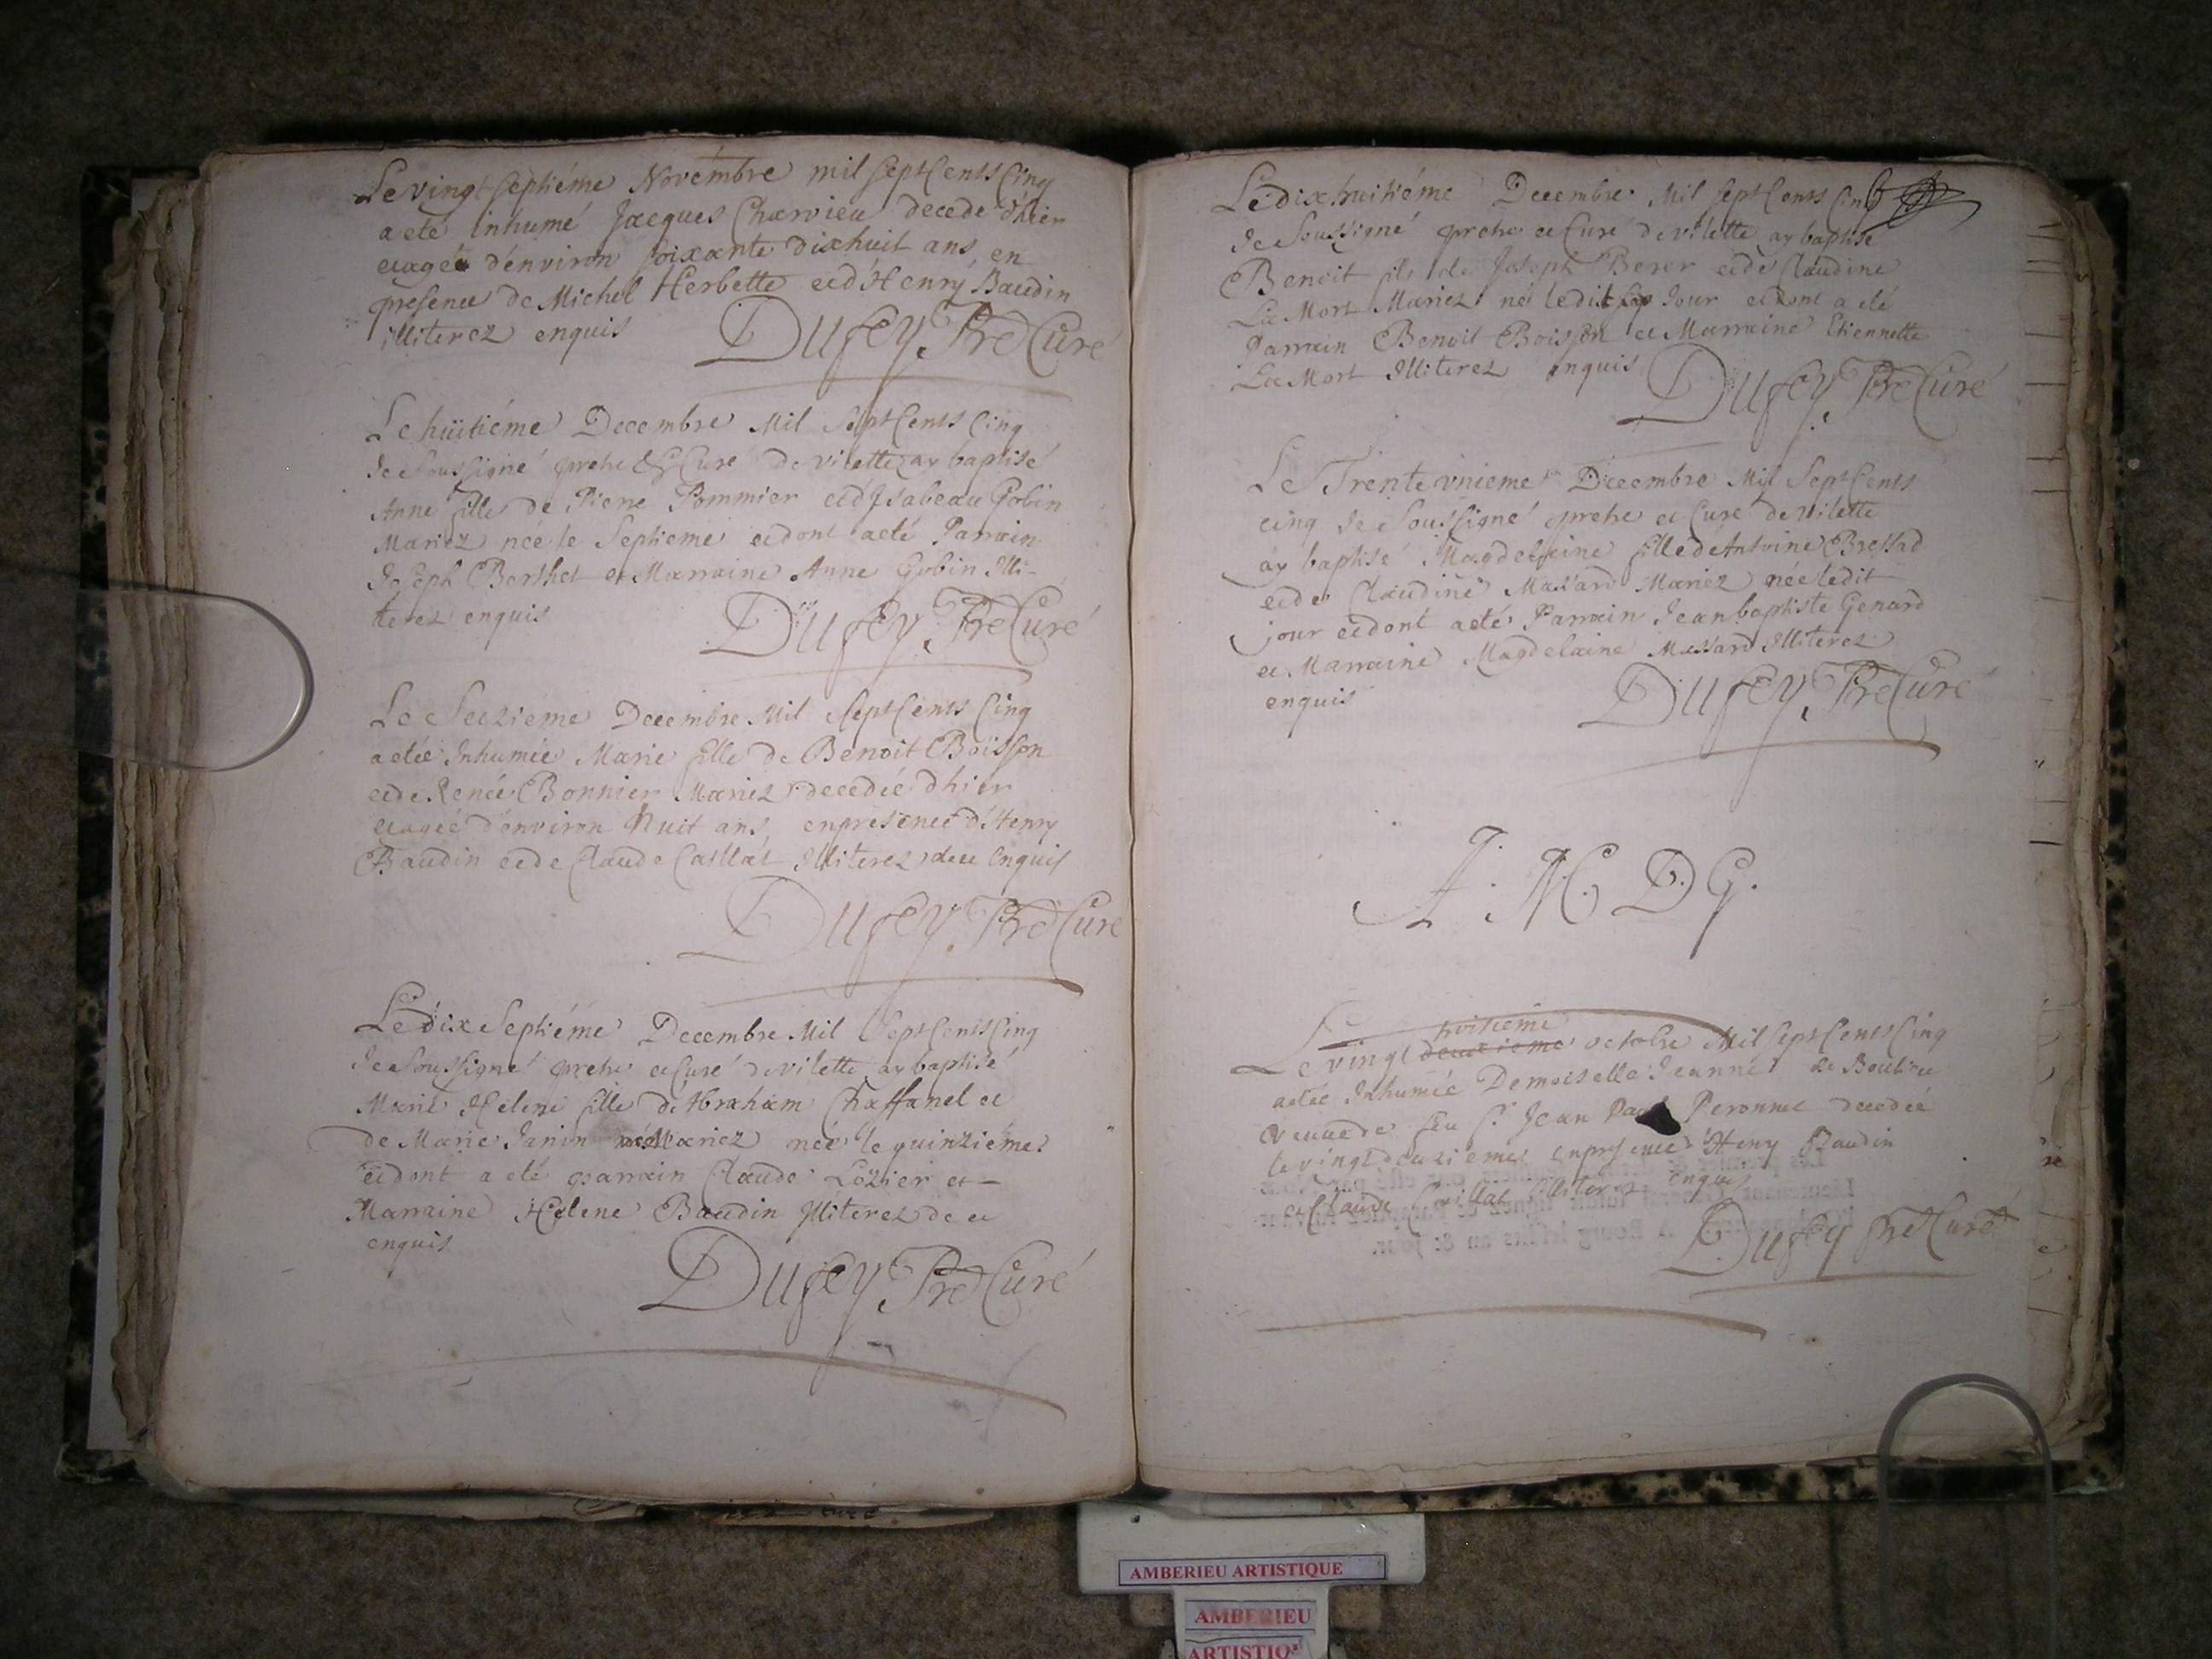 Le vingt septiéme Novembre mil sept Cents Cinq
a eté inhumé Jacques Charvieu decedé d'hier
et agé d'environ soixante dixhuit ans, en
presence de Michel Herbette et d'Henry Baudin
illiterez enquis
Dufey, Pre Curé
Le huitiéme Decembre Mil Sept Cents Cinq
Je Soussigné prebre & Curé de vilette ay baptisé
Anne fille de Pierre Pommier et d'Isabeau Gobin
Mariez née le Septieme et dont a eté Parrain
Joseph Berthet et Marraine Anne Gobin Illi-
terez enquis
Dufey, Pre Curé
Le Seizieme Decembre Mil Sept Cents Cinq
a etée Inhumée Marie fille de Benoit Boisson
et de Renée Bonnier Mariez decedée d'hier
et agée d'environ huit ans, en presence d'Henry
Baudin et de Claude Caillat Illiterez de ce Enquis
Dufey, Pre Curé
Le dix Septiéme Decembre Mil Sept Cents Cinq
Je Soussigné prebre et Curé de vilette ay baptisé
Marie Helene fille d'Abraham Chaffanel et
de Marie Janin Mariez née le quinzieme
et dont a eté parrain Claude Lozier et
Marraine Helene Baudin Illiterez de ce
enquis
Dufey, Pre Curé
Le dixhuitiéme Decembre Mil Sept Cents Cinq
Je Soussigné prebre et Curé de vilette ay baptisé
Benoit fils de Joseph Berer et de Claudine
La Mort Mariez né ledit Jour et dont a eté
Parrain Benoit Boisson et Marraine Etiennette
La Mort Illiterez enquis
Dufey, Pre Curé
Le Trente vnieme Decembre Mil Sept Cents
cinq Je Soussigné prebre et Curé de vilette
ay baptisé Magdelaine fille de Antoine Bressad
et de Claudine Massard Mariez née ledit
jour et dont a eté Parrain Jean baptiste Genard
et Marraine Magdelaine Massard Illiterez
enquis
Dufey, Pre Curé
A. M. D. G.
huitieme
Le vingt deuxieme octobre Mil Sept Cents Cinq
a etée Inhumée Demoiselle Jeanne de Boulieu
veuve de feu Sr. Jean Paul Peronnet decedée
le vingt deuxieme en presence d'Henry Baudin
et Claude Caillat Illiterez enquis
Dufey Pre Curé
AMBERIEU ARTISTIQUE
AMBERIEU
ARTISTIQ